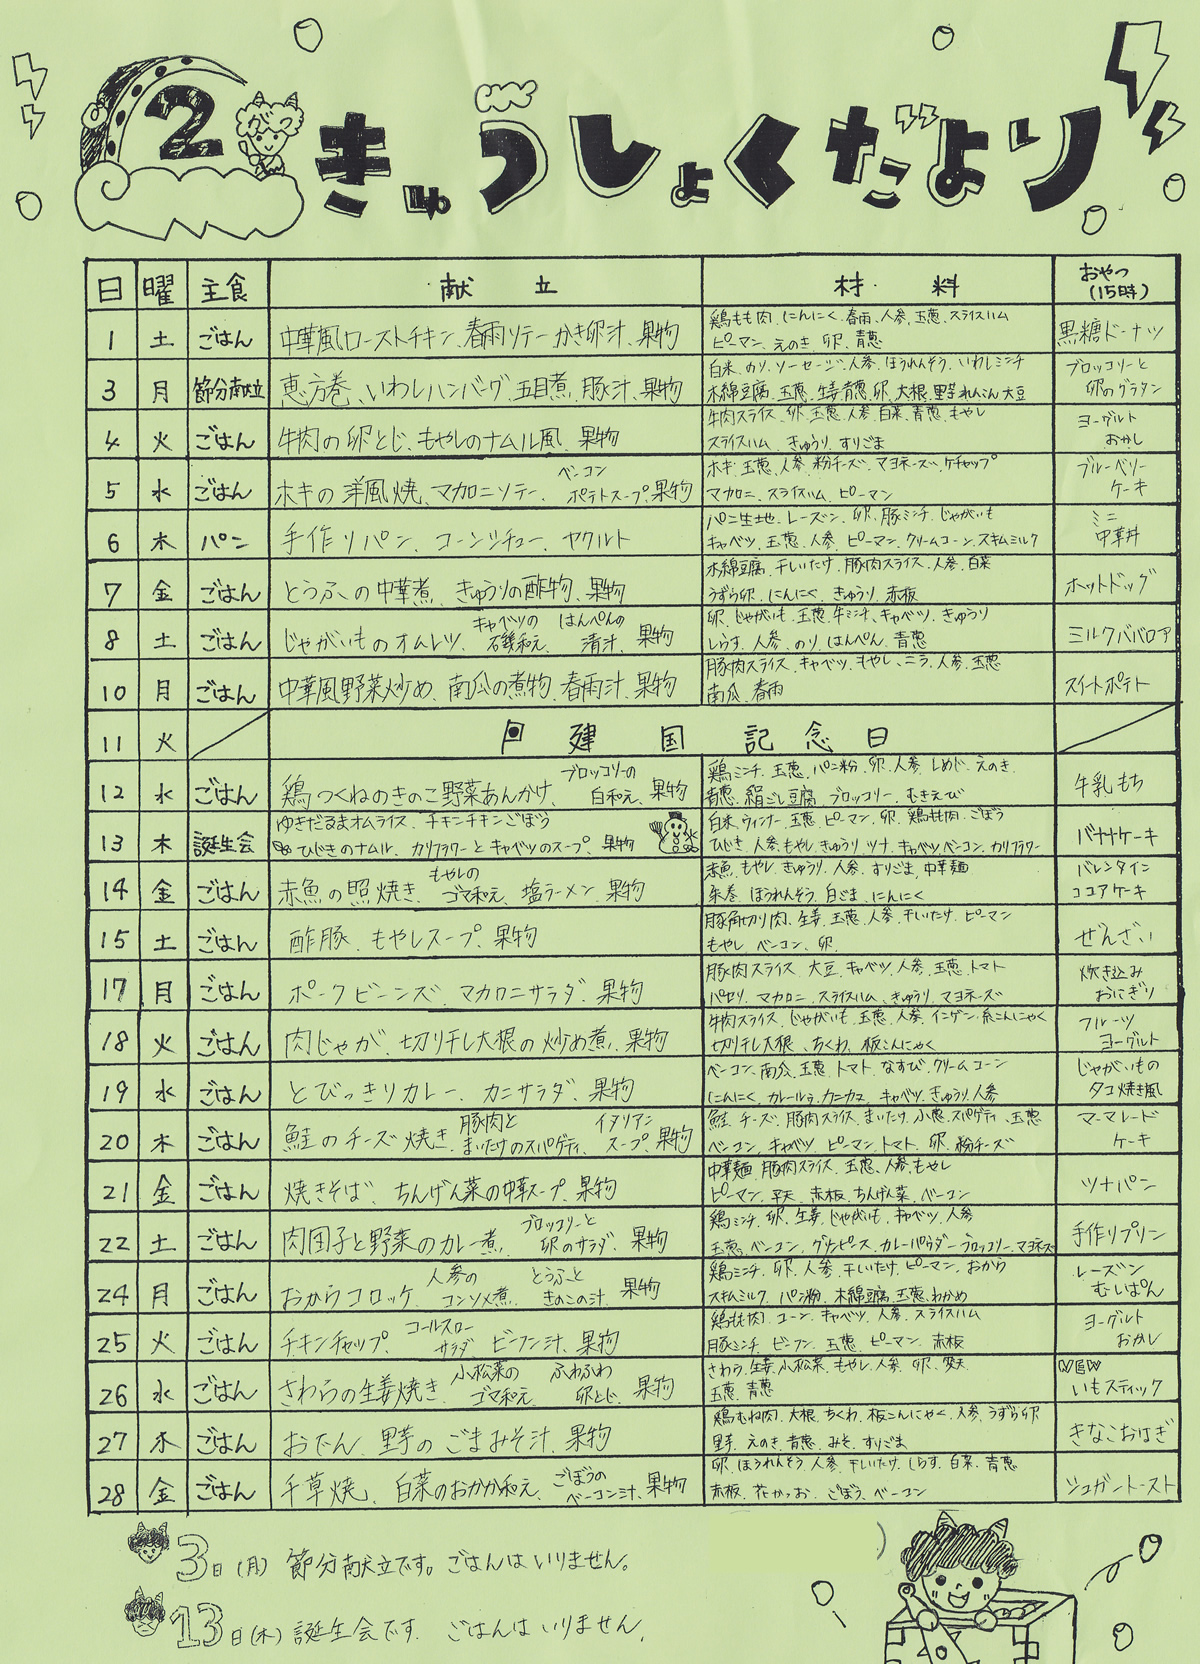 2 きゅうしょくだより
日 曜 主食 献立 材料 おやつ(15時)
1 土 ごはん 中華風ローストチキン、春雨ソテー、かき卵汁、果物 鶏もも肉、にんにく、春雨、人参、玉葱、スライスハム
ピーマン、えのき、卵、青葱 黒糖ドーナツ
3 月 節分献立 恵方巻、いわしハンバーグ、五目煮、豚汁、果物 白米、のり、ソーセージ、人参、ほうれんそう、いわしミンチ
木綿豆腐、玉葱、生姜、青葱、卵、大根、里芋、れんこん、大豆 ブロッコリーと卵のグラタン
4 火 ごはん 牛肉の卵とじ、もやしのナムル風、果物 牛肉スライス、卵、玉葱、人参、白菜、青葱、もやし
スライスハム、きゅうり、すりごま ヨーグルト おかし
5 水 ごはん ホキの洋風焼、マカロニソテー、ベーコンポテトスープ、果物 ホキ、玉葱、人参、粉チーズ、マヨネーズ、ケチャップ
マカロニ、スライスハム、ピーマン ブルーベリーケーキ
6 木 パン 手作りパン、コーンシチュー、ヤクルト パン生地、レーズン、卵、豚ミンチ、じゃがいも
キャベツ、玉葱、人参、ピーマン、クリームコーン、スキムミルク ミニ中華丼
7 金 ごはん とうふの中華煮、きゅうりの酢物、果物 木綿豆腐、干しいたけ、豚肉スライス、人参、白菜
うずら卵、にんにく、きゅうり、赤板 ホットドッグ
8 土 ごはん じゃがいものオムレツ、キャベツの磯和え、はんぺんの清汁、果物 卵、じゃがいも、玉葱、牛ミンチ、キャベツ、きゅうり
しらす、人参、のり、はんぺん、青葱 ミルクババロア
10 月 ごはん 中華風野菜炒め、南瓜の煮物、春雨汁、果物 豚肉スライス、キャベツ、もやし、ニラ、人参、玉葱
南瓜、春雨 スイートポテト
11 火 建国記念日
12 水 ごはん 鶏つくねのきのこ野菜あんかけ、ブロッコリーの白和え、果物 鶏ミンチ、玉葱、パン粉、卵、人参、しめじ、えのき、
青葱、絹ごし豆腐、ブロッコリー、むきえび 牛乳もち
13 木 誕生会 ゆきだるまオムライス、チキンチキンごぼう
ひじきのナムル、カリフラワーとキャベツのスープ、果物 白米、ウィンナー、玉葱、ピーマン、卵、鶏もも肉、ごぼう
ひじき、人参、もやし、きゅうり、ツナ、キャベツ、ベーコン、カリフラワー バナナケーキ
14 金 ごはん 赤魚の照焼き、もやしのゴマ和え、塩ラーメン、果物 赤魚、もやし、きゅうり、人参、すりごま、中華麺
朱巻、ほうれんそう、白ごま、にんにく バレンタインココアケーキ
15 土 ごはん 酢豚、もやしスープ、果物 豚角切り肉、生姜、玉葱、人参、干しいたけ、ピーマン
もやし、ベーコン、卵、 ぜんざい
17 月 ごはん ポークビーンズ マカロニサラダ、果物 豚肉スライス、大豆、キャベツ、人参、玉葱、トマト
パセリ、マカロニ、スライスハム、きゅうり、マヨネーズ 炊き込みおにぎり
18 火 ごはん 肉じゃが、切り干し大根の炒め煮、果物 牛肉スライス、じゃがいも、玉葱、人参、インゲン、糸こんにゃく
切り干し大根、ちくわ、板こんにゃく フルーツヨーグルト
19 水 ごはん とびっきりカレー、カニサラダ、果物 ベーコン、南瓜、玉葱、トマト、なすび、クリームコーン
にんにく、カレールゥ、カニカマ、キャベツ、きゅうり、人参 じゃがいものタコ焼き風
20 木 ごはん 鮭のチーズ焼き、豚肉とまいたけのスパゲティ、イタリアンスープ、果物 鮭、チーズ、豚肉スライス、まいたけ、小葱、スパゲティ、玉葱
ベーコン、キャベツ、ピーマン、トマト、卵、粉チーズ マーマレードケーキ
21 金 ごはん 焼きそば、ちんげん菜の中華スープ、果物 中華麺、豚肉スライス、玉葱、人参、もやし
ピーマン、平天、赤板、ちんげん菜、ベーコン ツナパン
22 土 ごはん 肉団子と野菜のカレー煮、ブロッコリーと卵のサラダ、果物 鶏ミンチ、卵、生姜、じゃがいも、キャベツ、人参
玉葱、ベーコン、グリンピース、カレーパウダー、ブロッコリー、マヨネーズ 手作りプリン
24 月 ごはん おからコロッケ、人参のコンソメ煮、とうふときのこの汁、果物 鶏ミンチ、卵、人参、干しいたけ、ピーマン、おから
スキムミルク、パン粉、木綿豆腐、玉葱、わかめ レーズンむしぱん
25 火 ごはん チキンチャップ、コールスローサラダ ビーフン汁、果物 鶏もも肉、コーン、キャベツ、人参、スライスハム
豚ミンチ、ビーフン、玉葱、ピーマン、赤板 ヨーグルト おかし
26 水 ごはん さわらの生姜焼き、小松菜のゴマ和え、ふわふわ卵とじ、果物 さわら、生姜、小松菜、もやし、人参、卵
玉葱、青葱 NEW いもスティック
27 木 ごはん おでん、里芋のごまみそ汁、果物 鶏むね肉、大根、ちくわ、板こんにゃく、人参、うずら卵
里芋、えのき、青葱、みそ、すりごま きなこおはぎ
28 金 ごはん 千草焼、白菜のおかか和え、ごぼうのベーコン汁、果物 卵、ほうれんそう、人参、干しいたけ、しらす、白菜、青葱
赤板、花かつお、ごぼう、ベーコン シュガートースト
3日(月) 節分献立です。ごはんはいりません。
13日(木) 誕生会です。ごはんはいりません。